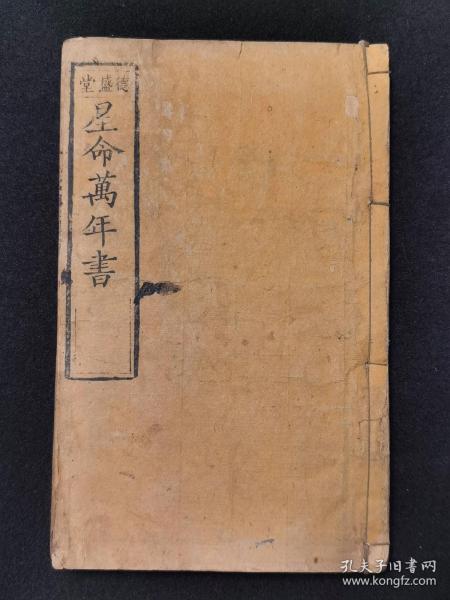 德盛堂
星命萬年書
孔夫子旧书网
www.kongfz.com